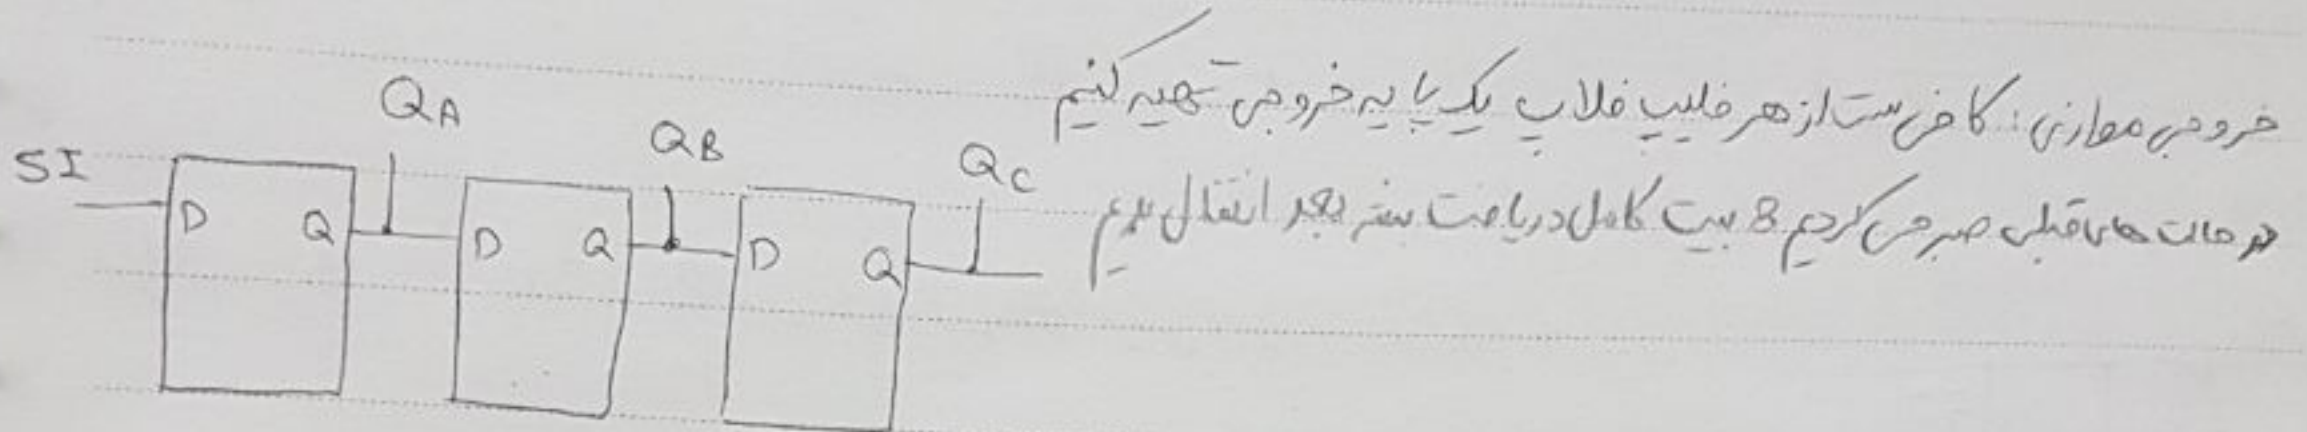 خروجی موازی: کافی ست از هر فلیپ فلاپ یک پایه خروجی تهیه کنیم
در حالت های قبلی صبر می کردیم 8 بیت کامل دریافت بشه بعد انتقال بدیم
QA
QB
QC
SI
D Q D Q D Q